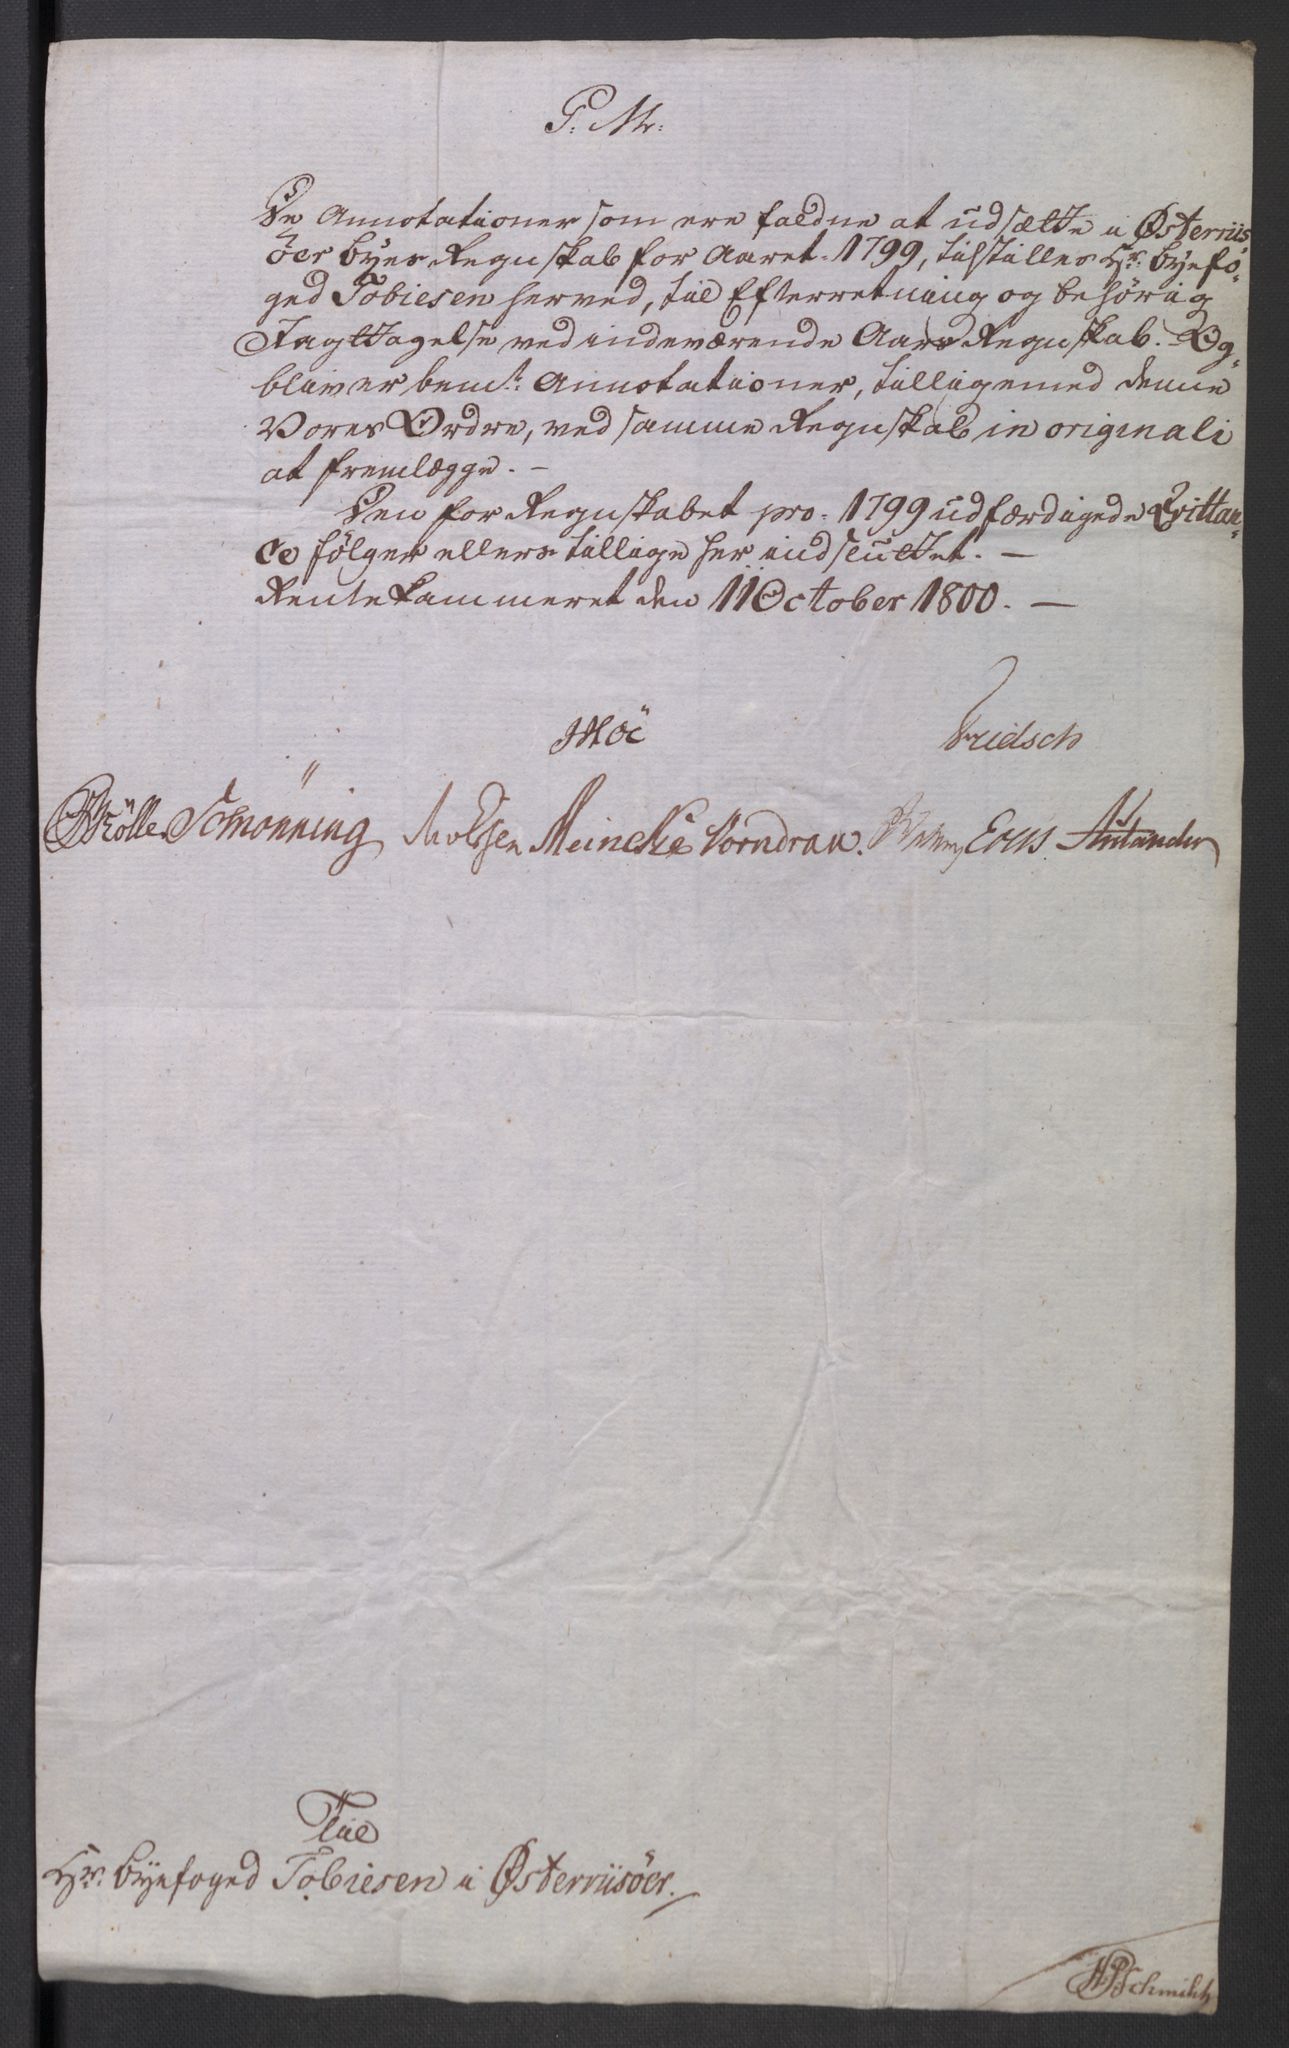 P. M.
De Annotationer som ere faldne at udsætte i Østerriis
öer byes Regnskab for Aaret 1799, tilstilles Hr. Byefo-
ged Tobiesen herved, til Efterretning og behörig
Iagttagelse ved indeværende Aars Regnskab. Og
bliver bemte Annotationer, tilligemed denne
Vores Ordre, ved samme Regnskab in originali
at fremlægge. -
Den for Regnskabet pro. 1799 udfærdigede Qvittan-
ce følger ellers tillige her indsluttet. —
Rentekammeret den 11 October 1800. —
Fridsch
Mölle Schönning Meincke Vorndran.
Til
Hr. Byefoged Tobiesen i Østerriisöer.